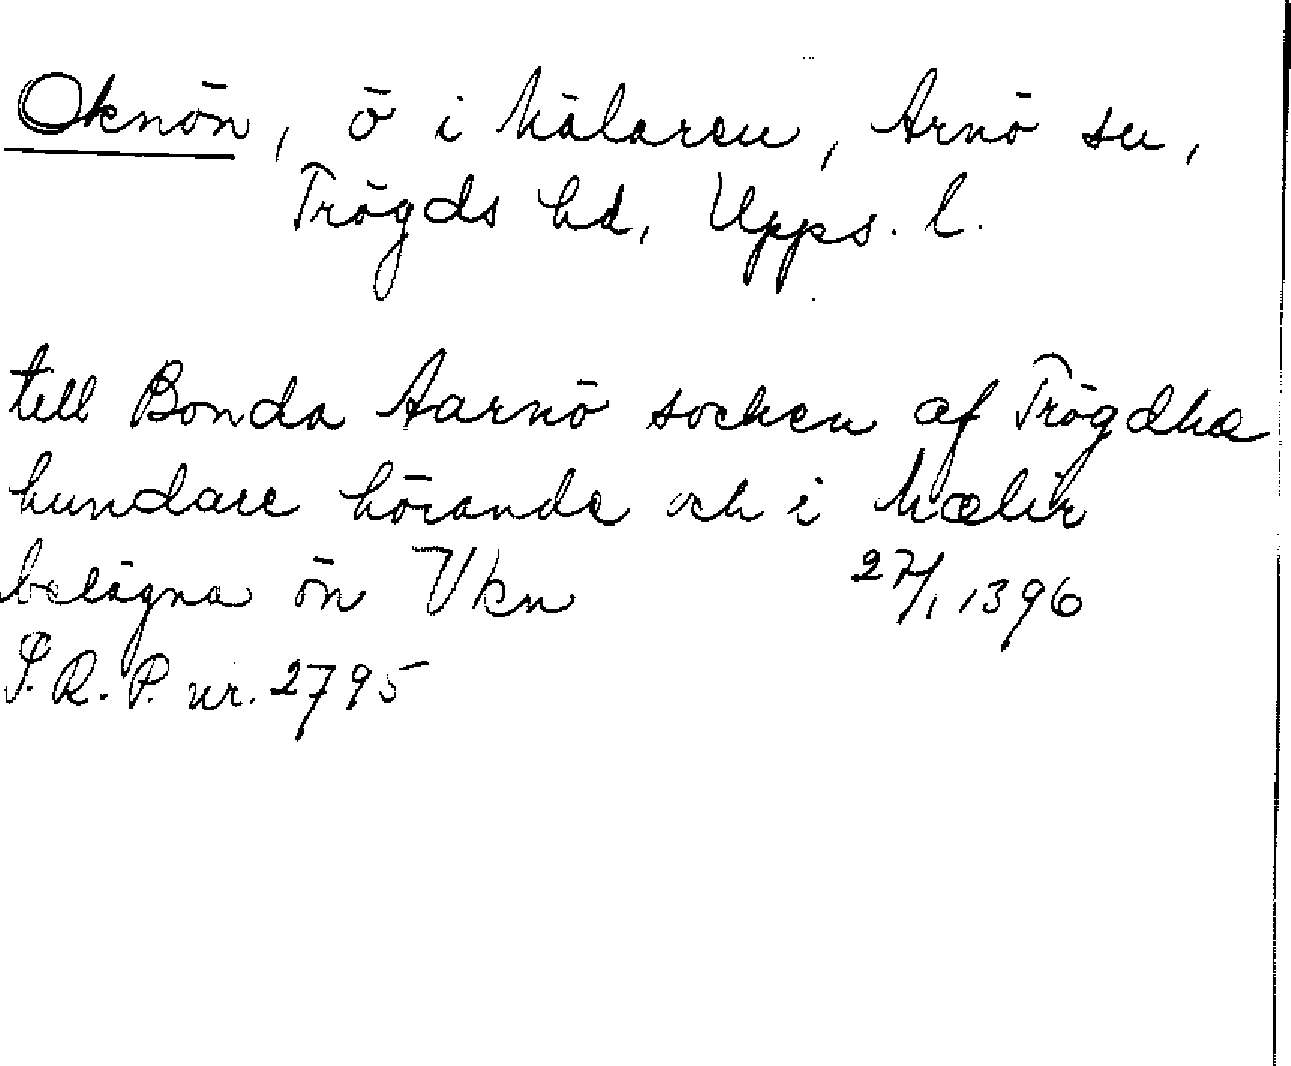 Oknön, ö i Mälaren, Arnö sn,
Trögds hd, Upps. l.
till Bonda Aarnö socken af Trögdha
hundare hörande och i Mælir
belägna ön Vkn 27/1 1396
S.R.P. nr. 2795